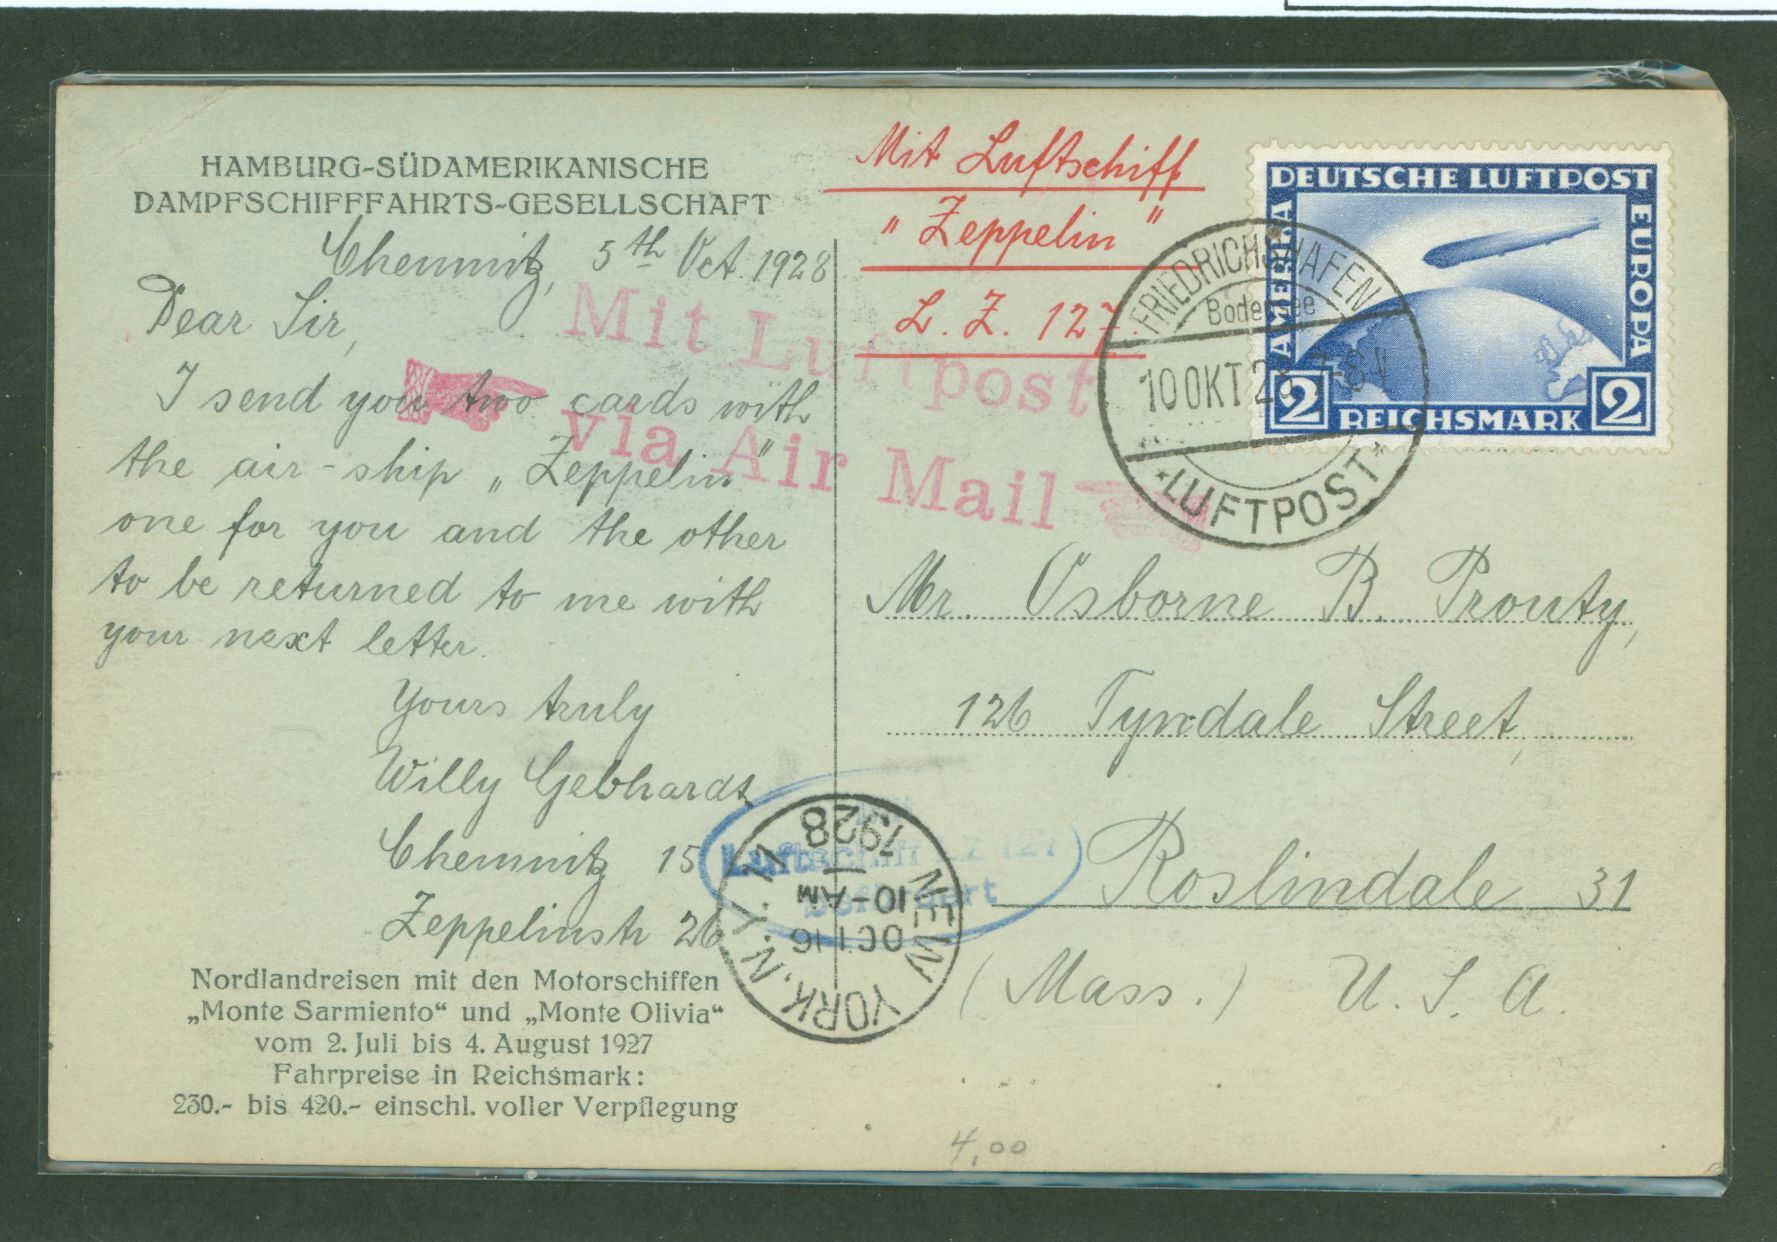 HAMBURG-SÜDAMERIKANISCHE
DAMPFSCHIFFFAHRTS-GESELLSCHAFT
Chemnitz, 5th Oct. 1928
Dear Sir,
I send you two cards with
the air-ship „Zeppelin"
one for you and the other
to be returned to me with
your next letter.
Yours truly
Willy Gebhardt
Chemnitz 15
Zeppelinstr 26
Nordlandreisen mit den Motorschiffen
„Monte Sarmiento“ und „Monte Olivia“
vom 2. Juli bis 4. August 1927
Fahrpreise in Reichsmark:
230.- bis 420.- einschl. voller Verpflegung
Mit Luftschiff
"Zeppelin"
L. Z. 127.
Mit Luftpost
via Air Mail
DEUTSCHE LUFTPOST
AMERIKA
EUROPA
2 REICHSMARK 2
FRIEDRICHSHAFEN
Bodensee
10 OKT 28 7-8 N
*LUFTPOST*
Mr. Osborne B. Prouty,
126 Tyndale Street,
Roslindale 31
(Mass.) U. S. A.
Mit
Luftschiff LZ 127
befördert
NEW YORK, N.Y.
OCT 16
10-AM
1928
4,00